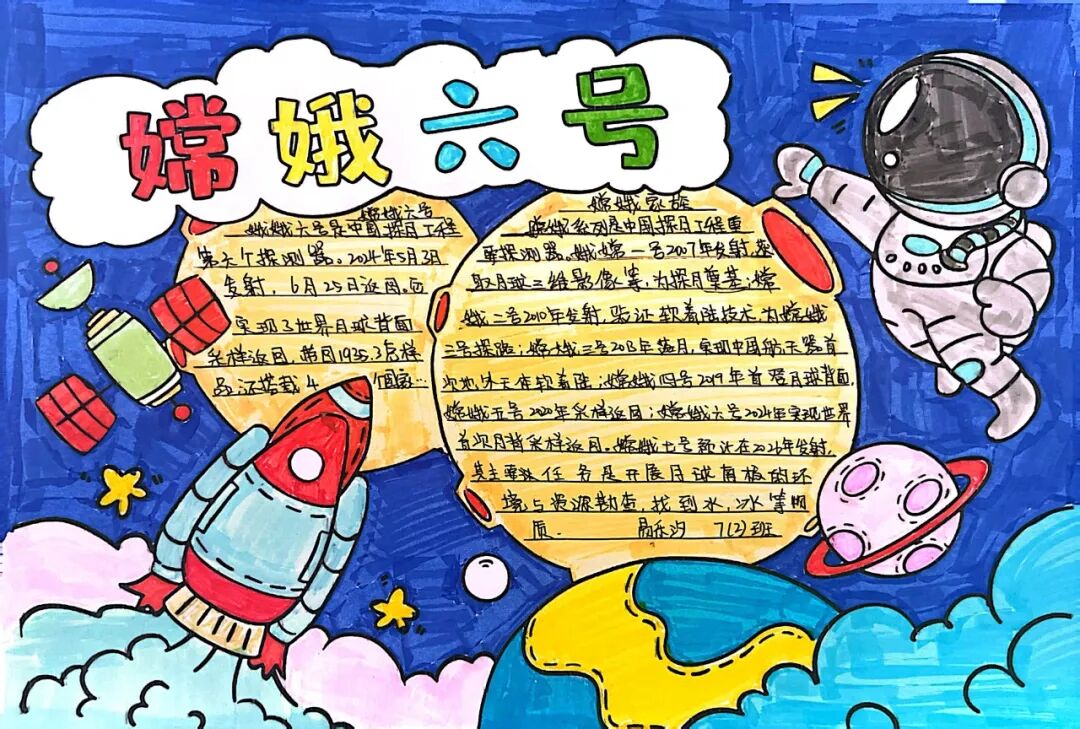 嫦娥六号
嫦娥六号
嫦娥六号是中国探月工程
第六个探测器。2024年5月3日
发射，6月25日返回。
实现了世界月球背面
采样返回，带回1935.3克样
品，还搭载4个国家…
嫦娥家族
嫦娥系列是中国探月工程重
要探测器。娥嫦一号2007年发射，
取月球三维影像等，为探月奠基；嫦
娥二号2010年发射，验证软着陆技术为嫦娥
三号探路；嫦娥三号2013年落月，实现中国航天器首
次地外天体软着陆；嫦娥四号2019年首登月球背面，
嫦娥五号2020年采样返回；嫦娥六号2024年实现世界
首次月背采样返回。嫦娥七号预计在2026年发射，
其主要任务是开展月球南极的环
境与资源勘查，找到水，冰等物
质。 7(2)班